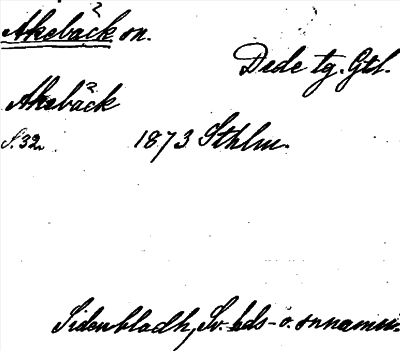 Akebäck sn.
Dede tg. Gtl.
Akebäck
S. 32. 1873 Sthlm.
Sidenbladh, Sv. hds- o. snnamn.